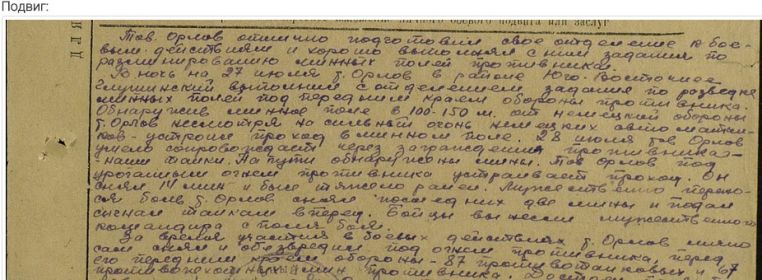 Подвиг:
личного боевого подвига или заслуг
Тов. Орлов отлично подготовил свое отделение к бое-
вым действиям и хорошо выполнял с ним задания по
разминированию минных полей противника.
В ночь на 27 июля т. Орлов в районе Юго-Восточнее
Глушинский выполнил с отделением задания по разведке
минных полей под передним краем обороны противника.
Обнаружив минное поле в 100-150 м. от немецкой обороны
т. Орлов несмотря на сильный огонь немецких автоматчи-
ков - устроил проход в минном поле. 28 июля тов Орлов
умело сопровождает через заграждения противника
наши танки. На пути обнаружены мины. Тов Орлов под
ураганным огнем противника устраивает проход. Он
снял 14 мин и был тяжело ранен. Мужественно перено-
ся боль т. Орлов снял последних две мины и подал
сигнал танкам вперед. Бойцы вынесли мужественного
командира с поля боя.
За время участия в боевых действиях т. Орлов лично
сам снял и обезвредил под огнем противника, перед
его передним краем обороны - 87 противотанковых и 67
противопехотных мин противника.